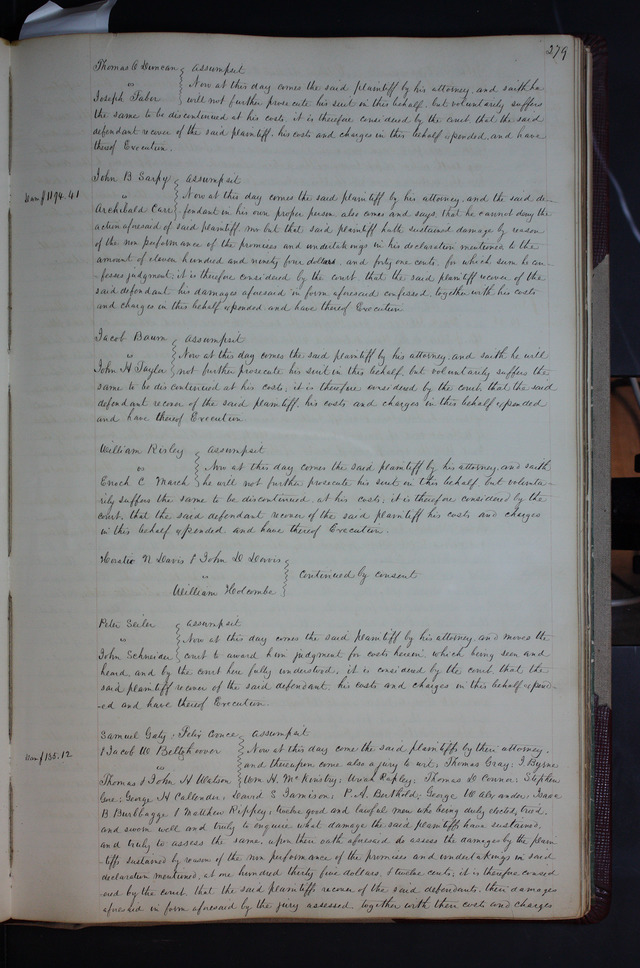 279
Thomas C Duncan } assumpsit
vs Now at this day comes the said plaintiff by his attorney, and saith he
Joseph Tabor } will not further prosecute his suit in this behalf, but voluntarily suffers
the same to be discontinued at his costs, it is therefore considered by the court, that the said
defendant recover of the said plaintiff, his costs and charges in this behalf expended, and have
thereof Execution.
John B Sarpy } assumpsit
Dam $1194.41
vs Now at this day comes the said plaintiff by his attorney, and the said de-
Archibald Carr } fendant in his own proper person also comes and says, that he cannot deny the
action aforesaid of said plaintiff nor but that said plaintiff hath sustained damage by reason
of the non performance of the promises and undertakings in his declaration mentioned to the
amount of eleven hundred and ninety four dollars, and forty one cents, for which sum he con-
fesses judgment; it is therefore considered by the court, that the said plaintiff recover of the
said defendant his damages aforesaid in form aforesaid confessed, together with his costs
and charges in this behalf expended and have thereof Execution
Jacob Baum } assumpsit
vs Now at this day comes the said plaintiff by his attorney, and saith he will
John H Taylor } not further prosecute his suit in this behalf, but voluntarily suffers the
same to be discontinued at his costs, it is therefore considered by the court, that the said
defendant recover of the said plaintiff, his costs and charges in this behalf expended
and have thereof Execution
William Risley } assumpsit
vs Now at this day comes the said plaintiff by his attorney, and saith
Enoch C March } he will not further prosecute his suit in this behalf but volunta-
rily suffers the same to be discontinued, at his costs; it is therefore considered by the
court, that the said defendant recover of the said plaintiff his costs and charges
in this behalf expended and have thereof Execution.
Horatio N Davis & John D Davis }
vs } continued by consent
William Holcombe }
Peter Seiler } assumpsit
vs Now at this day comes the said plaintiff by his attorney, and moves the
John Schneider } court to award him judgment for costs herein which being seen and
heard, and by the court here fully understood, it is considered by the court that the
said plaintiff recover of the said defendant, his costs and charges in this behalf expend-
ed and have thereof Execution.
Samuel Gaty, Felix Conce } assumpsit
Dam $135.12
& Jacob W Beltzhoover } Now at this day come the said plaintiffs by their attorney,
vs and thereupon come also a jury to wit, Thomas Gray; J Byrne
Thomas & John H Watson } Wm H. McKinsby; Uriah Rapley; Thomas D Connor; Stephen
Gore; George H Callender; David S Jamison; P. A. Berthold; George W Alexander; Isaac
B Burbbagge & Matthew Rippey; twelve good and lawful men who being duly elected, tried,
and sworn well and truly to enquire what damage the said plaintiffs have sustained,
and truly to assess the same, upon their oath aforesaid do assess the damages by the plain-
tiffs sustained by reason of the non performance of the promises and undertakings in said
declaration mentioned, at one hundred thirty five dollars, & twelve cents; it is therefore consid-
ered by the court that the said plaintiffs recover of the said defendants, their damages
aforesaid in form aforesaid by the jury assessed, together with their costs and charges